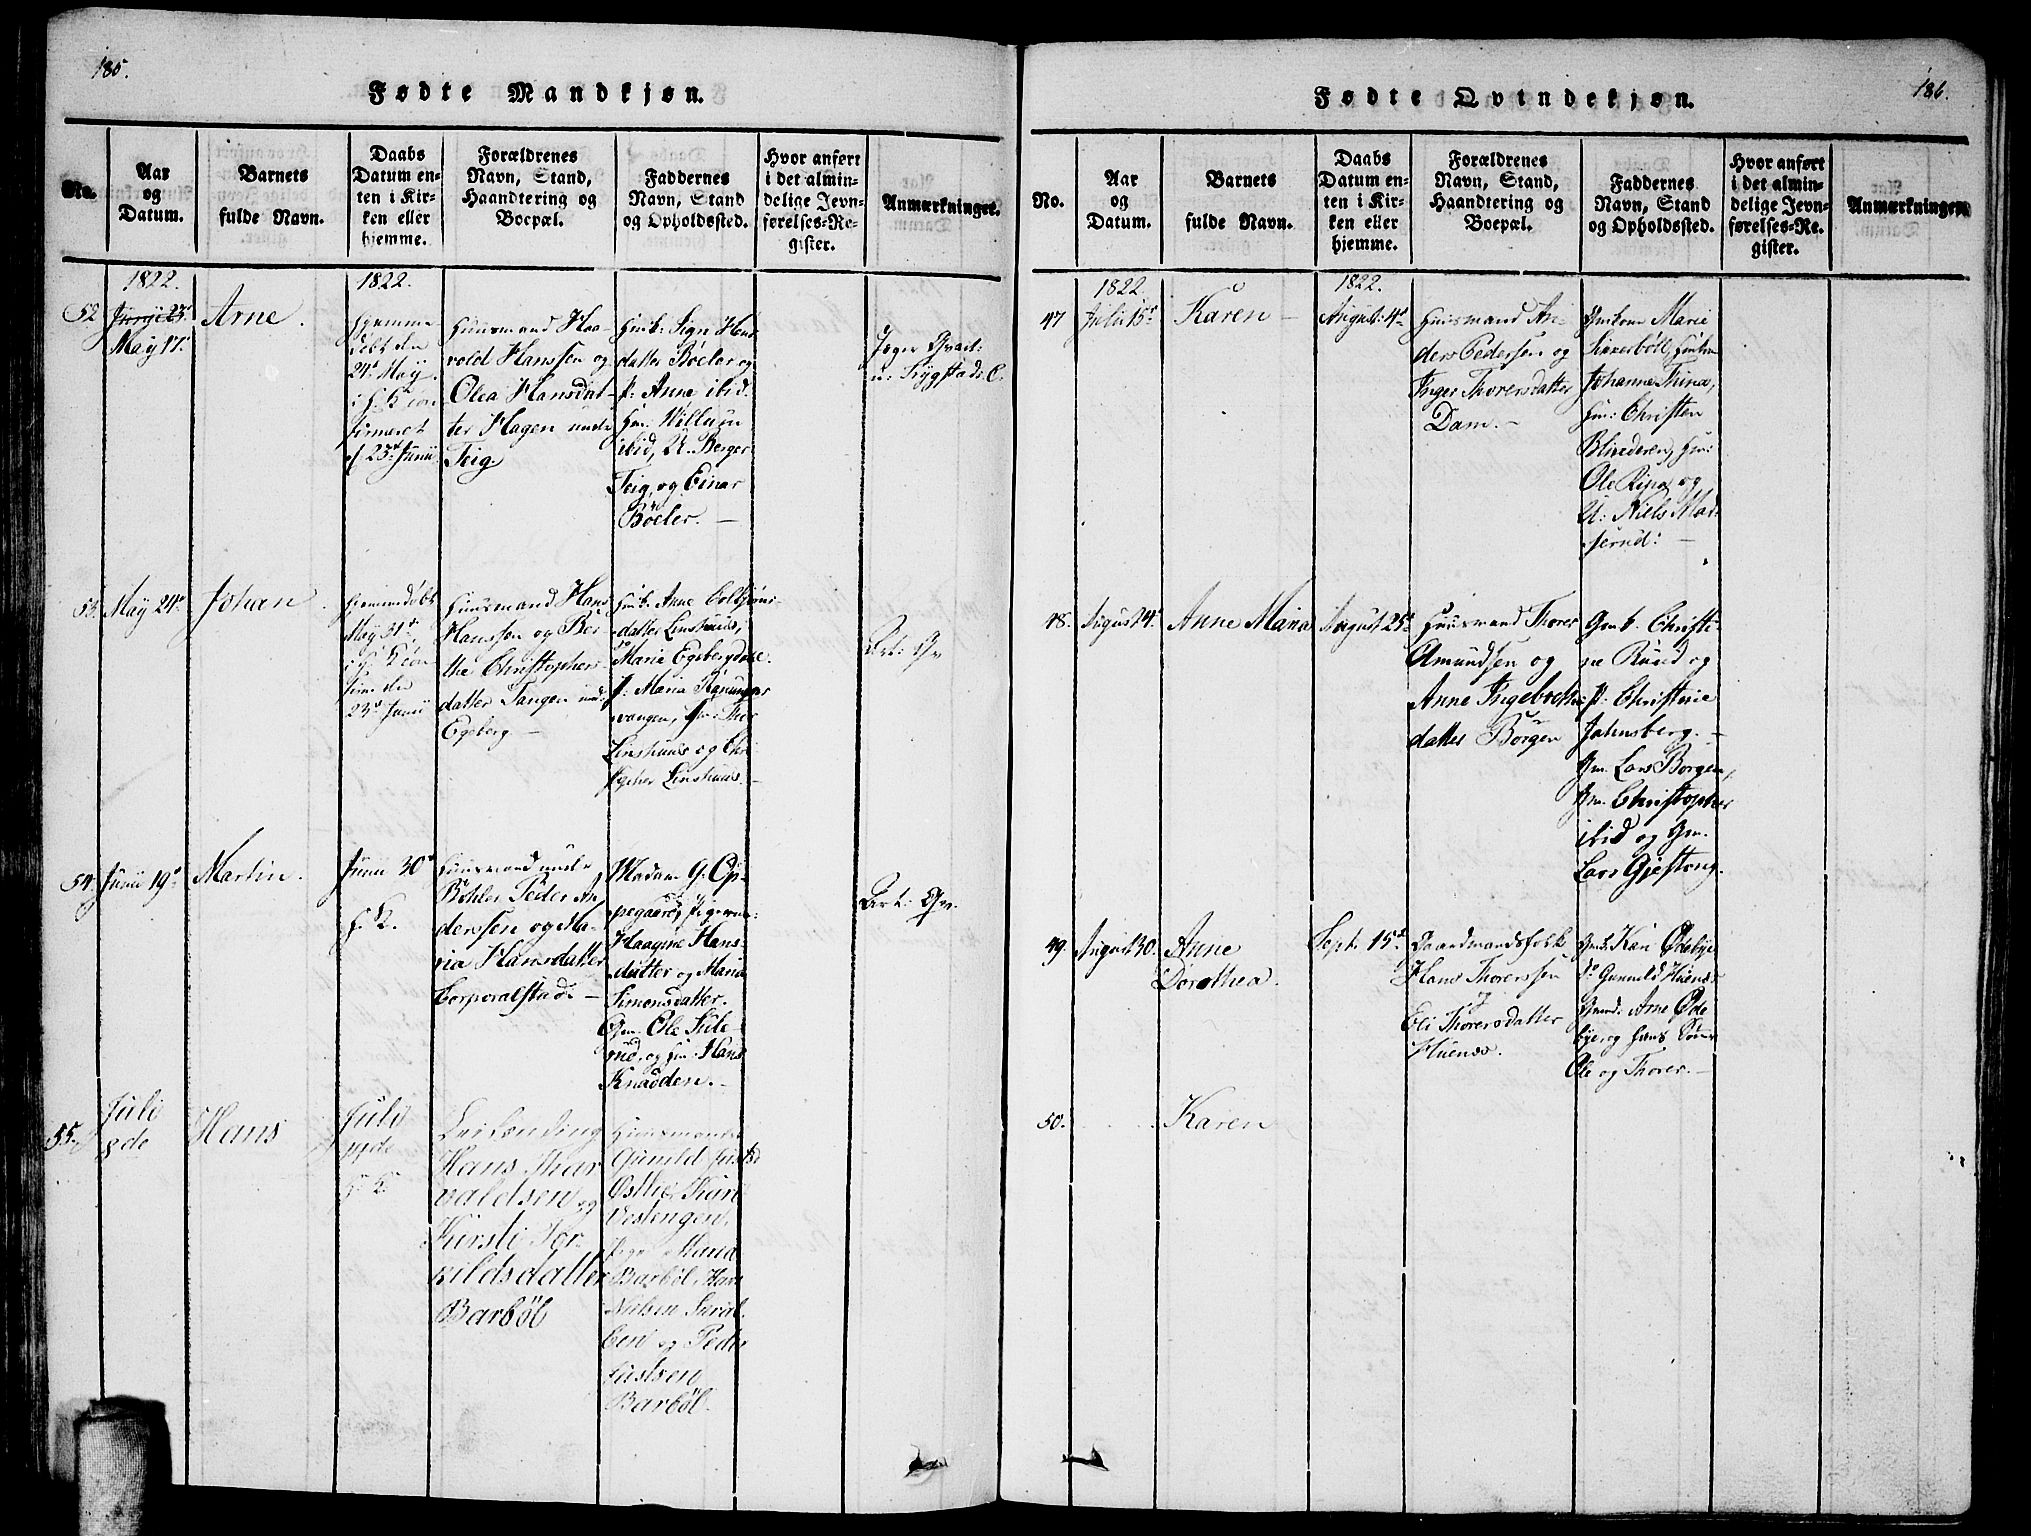 185.
Fødte Mandkjøn.
No.
Aar
og
Datum.
Barnets
fulde Navn.
Daabs
Datum en-
ten i Kir-
ken eller
hjemme.
Forældrenes
Navn, Stand,
Haandtering og
Boepæl.
Faddernes
Navn, Stand
og Opholdssted.
Hvor anført
i det almin-
delige Jevn-
førelses-Re-
gister.
Anmærkninger.
1822.
1822.
52
Junÿ 23.
May 17.
Arne.
hjemme
døbt den
24de May.
i H. K. con
firmeret
d. 23de Junii
Huusmand Haa-
vold Hanssen og
Olea Hansdat-
ter Hagen under
Teig.
Böeler og
P. Anne ibid.
Gm. Willum
ibid, U. Berger
Teig, og Einar
Böeler. —
53.
May 24de
Johan.
hjemmedøbt
May 31te,
i H. K. con
firm. den
23de Junii
Huusmand Hans
Hanssen og Ber-
the Christophers-
datter Tangen und.
Egeberg —
Hmk. Anne Colbjørns-
datter Linshuus,
Marie Egebergdale.
P. Maria
vangen, Hm. Thor
Linshuus og Chri-
stopher Linshuus. —
54.
Junii 19de
Martin.
Junii 30te
H. K.
Huusmand under
Böhler Peder An-
derssen og Ma-
ria Hansdatter
Corporalstad. —
Madam G. Op-
pegaard, Pigerne:
Haagine Hans-
datter og Maria
Simonsdatter.
Gm. Ole Skile-
rud, og Hm. Hans
Knadden. —
55.
Juli
8de
Hans
Juli
14de
H. K.
Leilending
Hans Thor
valdsen og
Kirsti Tor-
kildsdatter
Barböl
Huusmands
Gunild
Östlie, Kari
Vestengen,
Pige Maria
Barböl, Hans
Nielsen
og Peder
Justsen
Barböl.
186.
Fødte Qvindekjøn.
No.
Aar
og
Datum.
Barnets
fulde Navn.
Daabs
Datum en-
ten i Kir-
ken eller
hjemme.
Forældrenes
Navn, Stand,
Haandtering og
Boepæl.
Faddernes
Navn, Stand
og Opholdssted.
Hvor anført
i det almin-
delige Jevn-
førelses-Re-
gister.
Anmærkninger.
1822.
1822.
47
Julii 15de
Karen —
August: 4de
Huusmand An-
ders Pedersen og
Inger Thorersdatter
Dam. —
Marie
Johanne Thina,
Hm: Christen
Blinderen, Hm:
Ole Ring og
U: Niels Mar-
serud: —
48.
August 4.
Anne Maria
August 25de
Huusmand Thorer
Amundsen og
Anne Ingebrets-
datter Borgen
Gmk. Christi-
ne Ruud og
P. Christine
Johnsberg. —
Gm. Lars Borgen,
Gm. Christopher
ibid og Gm.
Lars Gjestang.
49.
August 30.
Anne
Dorothea.
Sept. 15de
Gaardmandsfolk
Hans Thorerssen
og
Eli Thorersdatter
Huenes.
Gmk. Kari Ødebye
do Gunnild Huenes
Gmd. Arne Øde
bye, og hans
Ole og Thorer. —
50.
Karen